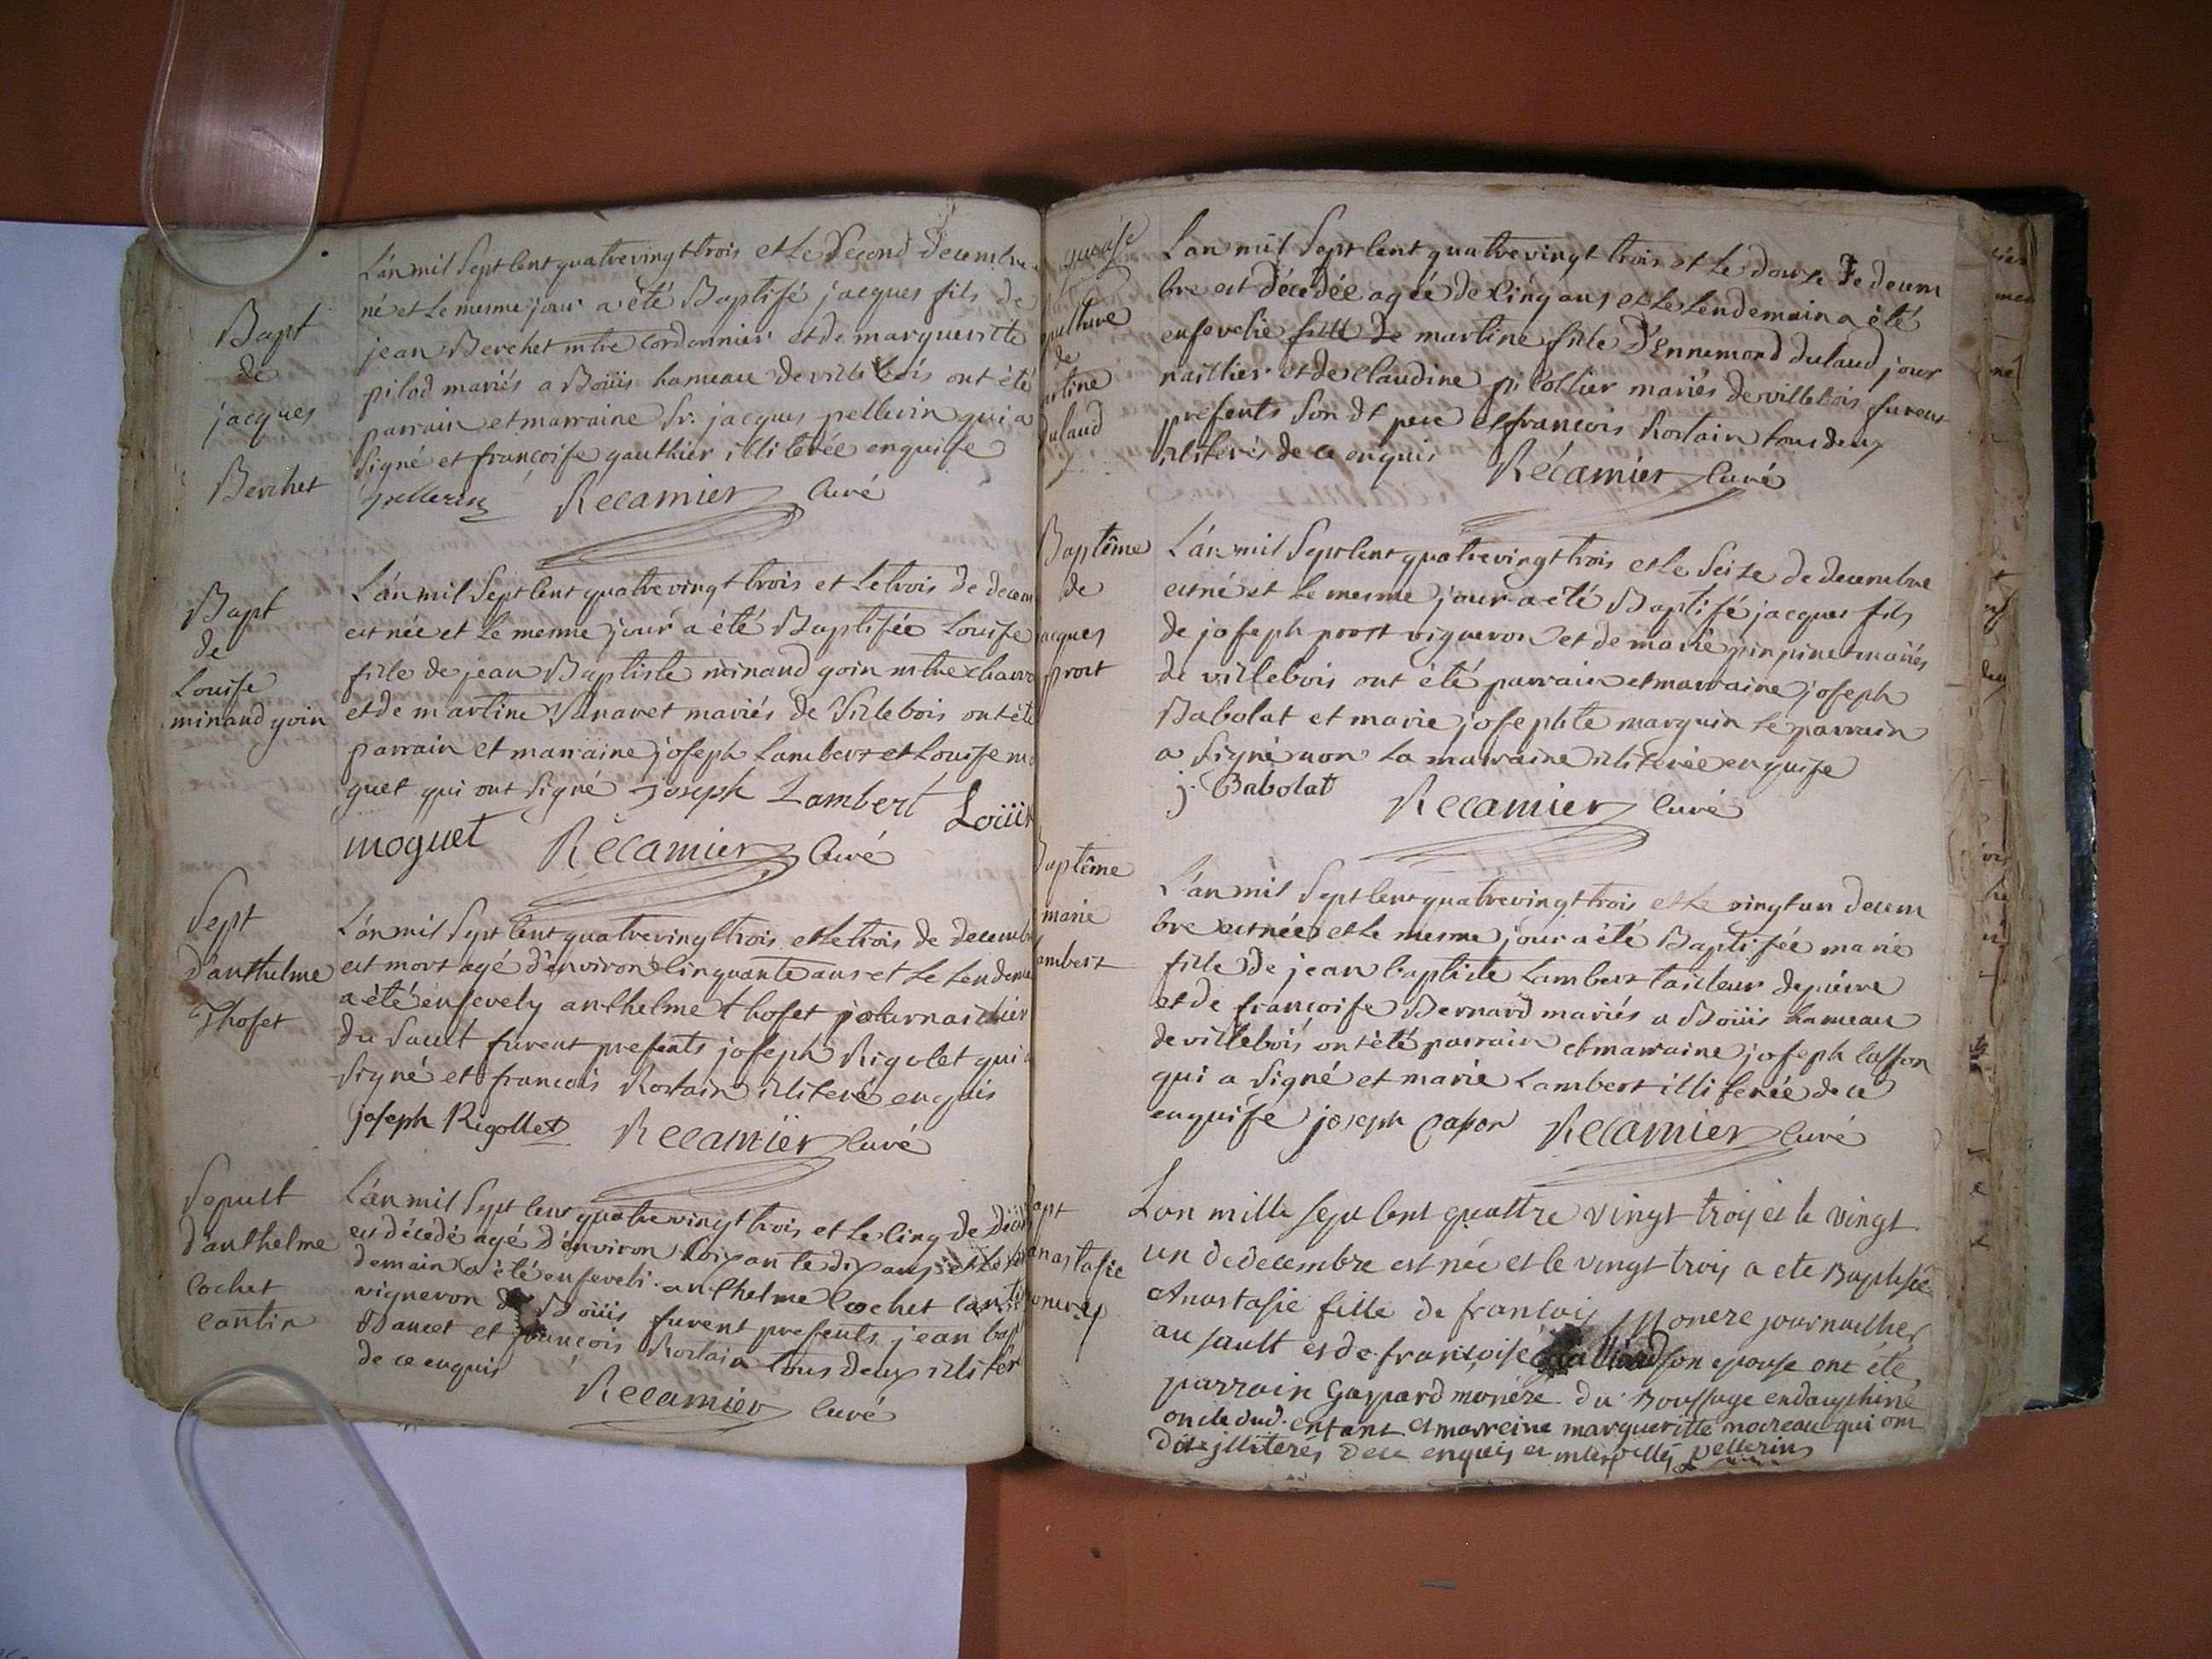 Bapt
de
jacques
Berchet
L'an mil Sept Cent quatrevingt trois et Le Second decembre
né et Le mesme jour a été Baptisé jacques fils de
jean Berchet mtre Cordonnier et de margueritte
pilod mariés a Boüis hameau de villebois ont été
parrain et marraine Sr. jacques pellerin qui a
Signé et francoise gauthier illiterée enquise
pellerin Récamier Curé
Bapt
de
Louise
minaud goin
L'an mil Sept Cent quatrevingt trois et Le trois de decem
est née et Le mesme jour a été Baptisée Louise
fille de jean Baptiste minaud goin mtre charro
et de martine mariés de Villebois ont été
parrain et marraine joseph Lambert et Louise mo
guet qui ont Signé joseph Lambert Loüise
moguet Récamier Curé
Sept
d'anthelme
Thoset
L'an mil Sept Cent quatrevingt trois et Le trois de decemb
est mort agé d'environ Cinquante ans et Le Lendema
a été ensevely anthelme thoset journaillier
du Sault furent presents joseph Rigolet qui a
Signé et francois Rostain illiteré enquis
joseph Rigollet Récamier Curé
Sepult
d'anthelme
Cochet
Cantin
L'an mil Sept Cent quatrevingt trois et Le Cinq de dece
est décédé agé d'environ Soixante dix ans et Le len
demain a été enseveli anthelme Cochet Canti
vigneron de Boüis furent presents jean bap
Bancet et francois Rostain tous deux illiter
de ce enquis
Récamier Curé
epulture
de
artine
dulaud
L'an mil Sept Cent quatrevingt trois et Le douze de decem
bre est décédée agée de Cinq ans et Le Lendemain a été
ensevelie fille de martine fille d'Ennemond dulaud jour
naillier et de Claudine pi Collier mariés de villebois furent
presents Son dt pere et francois Rostain tous deux
illiterés de ce enquis Récamier Curé
Baptême
de
jacques
prost
L'an mil Sept Cent quatrevingt trois et Le Seize de decembre
est né et Le mesme jour a été Baptisé jacques fils
de joseph prost vigneron et de marie pin pinet mariés
de villebois ont été parrain et marraine joseph
Babolat et marie josephte marguin Le parrain
a Signé non La marraine illiterée enquise
j. Babolat Récamier Curé
Baptême
marie
ambert
L'an mil Sept Cent quatrevingt trois et Le vingt un decem
bre est née et Le mesme jour a été Baptisée marie
fille de jean baptiste Lambert tailleur de pierre
et de francoise Bernard mariés a Boüis hameau
de villebois ont été parrain et marraine joseph Casson
qui a Signé et marie Lambert illiterée de ce
enquise joseph Casson Récamier Curé
apt
anastasie
onerey
L'an mille sept cent quattre vingt trois et le vingt
un de decembre est née et le vingt trois a ete Baptisée
Anastasie fille de francois Monere journailler
au sault et de francoise son epouse ont été
parrain Gaspard monére du Boussage en dauphiné
oncle dud. enfant et marreine margueritte moireau qui ont
dit illiterés de ce enquis et interpellés pellerin